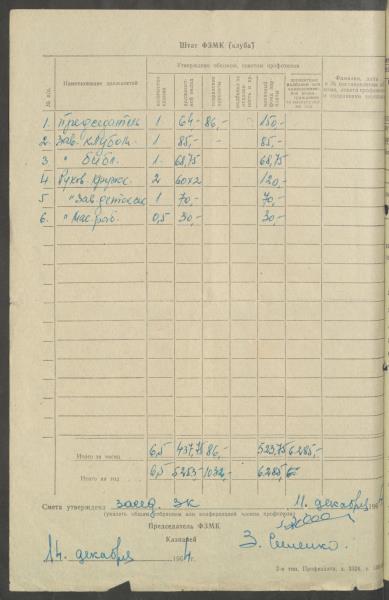 Штат ФЗМК (клуба)
Утверждено обкомом, советом профсоюза
№ п/п. Наименование должностей количество единиц должностной оклад месячный фонд зарплаты Фамилия, дата
1. Председатель 1 64- 86,- 150,-
2. Зав. клубом 1 85,- 85,-
3 " библ. 1 68,75 68,75
4 Руков. кружк. 2 60х2 120,-
5 " Зав. детсектор 1 70,- 70,-
6. " Мас. раб. 0,5 30,- 30,-
Итого за месяц 6,5 437,75 86,- 523,75 6285,-
Итого на год 6,5 5253- 1032,- 6285,-
Смета утверждена засед. ЗК 11. декабря 196
(указать общим собранием или конференцией членов профсоюза)
Председатель ФЗМК
Казначей
14. декабря 1964 г.
2-я тип. Профиздата, з.